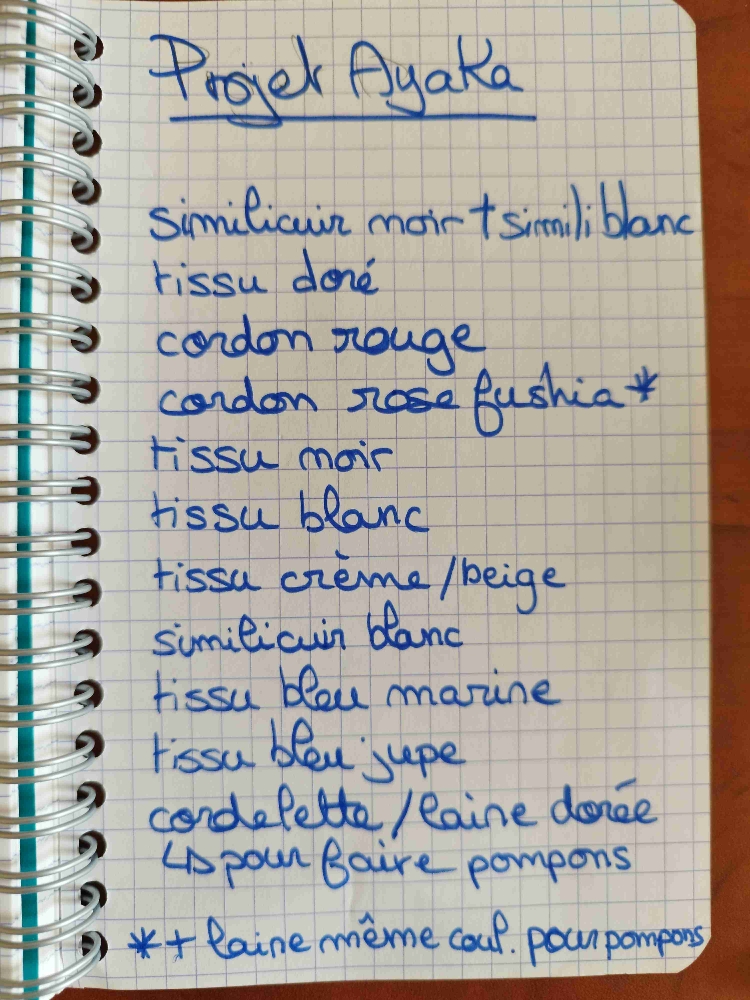 Projet Ayaka
similicuir noir + simili blanc
tissu doré
cordon rouge
cordon rose fushia *
tissu noir
tissu blanc
tissu crème/beige
similicuir blanc
tissu bleu marine
tissu bleu jupe
cordelette/laine dorée
↳ pour faire pompons
* + laine même coul. pour pompons